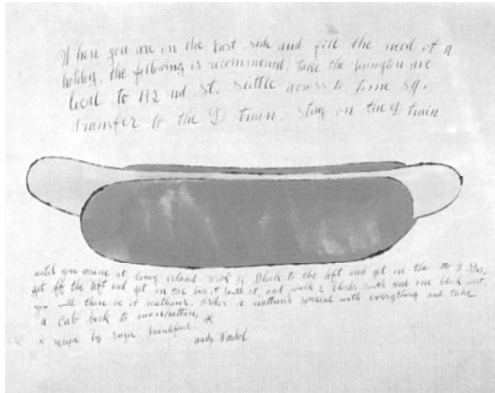 When you are on the East side and feel the need of a
hotdog, the following is recommended: take the Lexington ave
local to 42 nd St. Suttle across to time sq.
transfer to the D train. Stay on the D train
until you arrive at Coney island. walk Block to the left and get on the
get off the left and get on the bus, and walk 2 blocks south and one block west,
you will then be at nathans. Order a nathan's special with everything and take
a cab back to manhattan.
a recipe by suzie frankfurt
andy Warhol